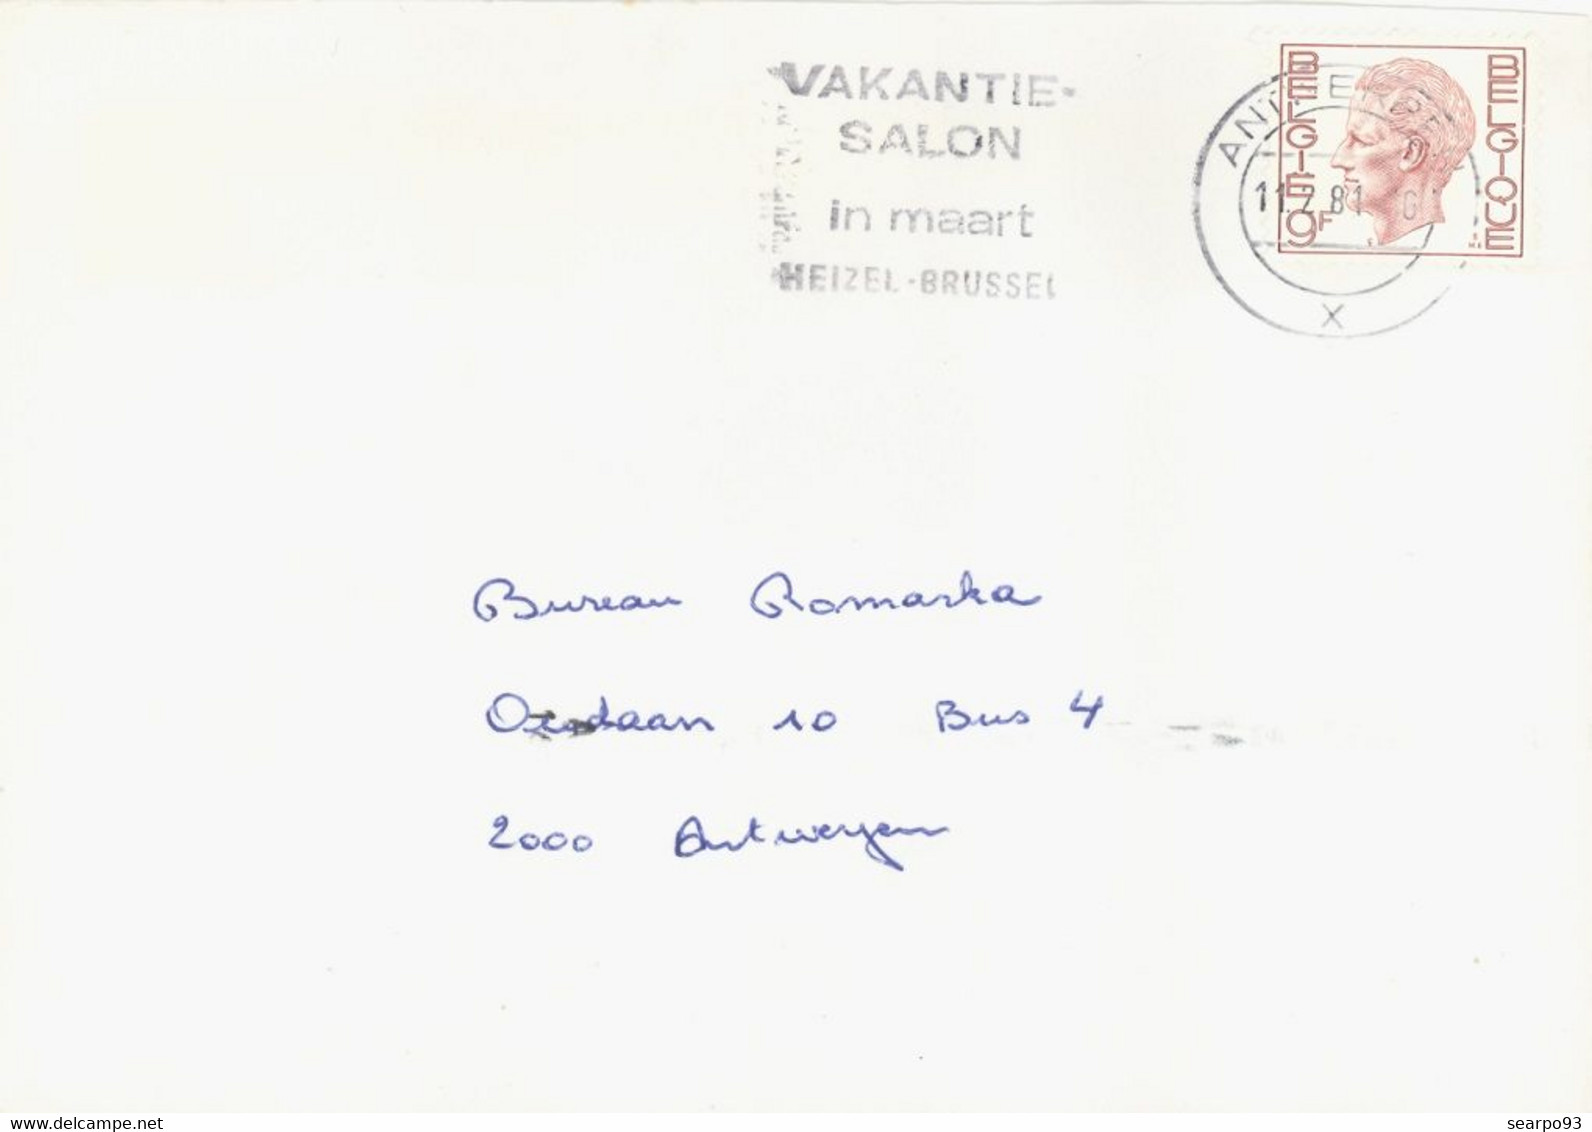 VAKANTIE-
SALON
in maart
HEIZEL-BRUSSEL
ANTWERPEN
11.2.81
X
BELGIE
9F
BELGIQUE
Bureau Romarka
Oudaan 10 Bus 4
2000 Antwerpen
www.delcampe.net
searpo93